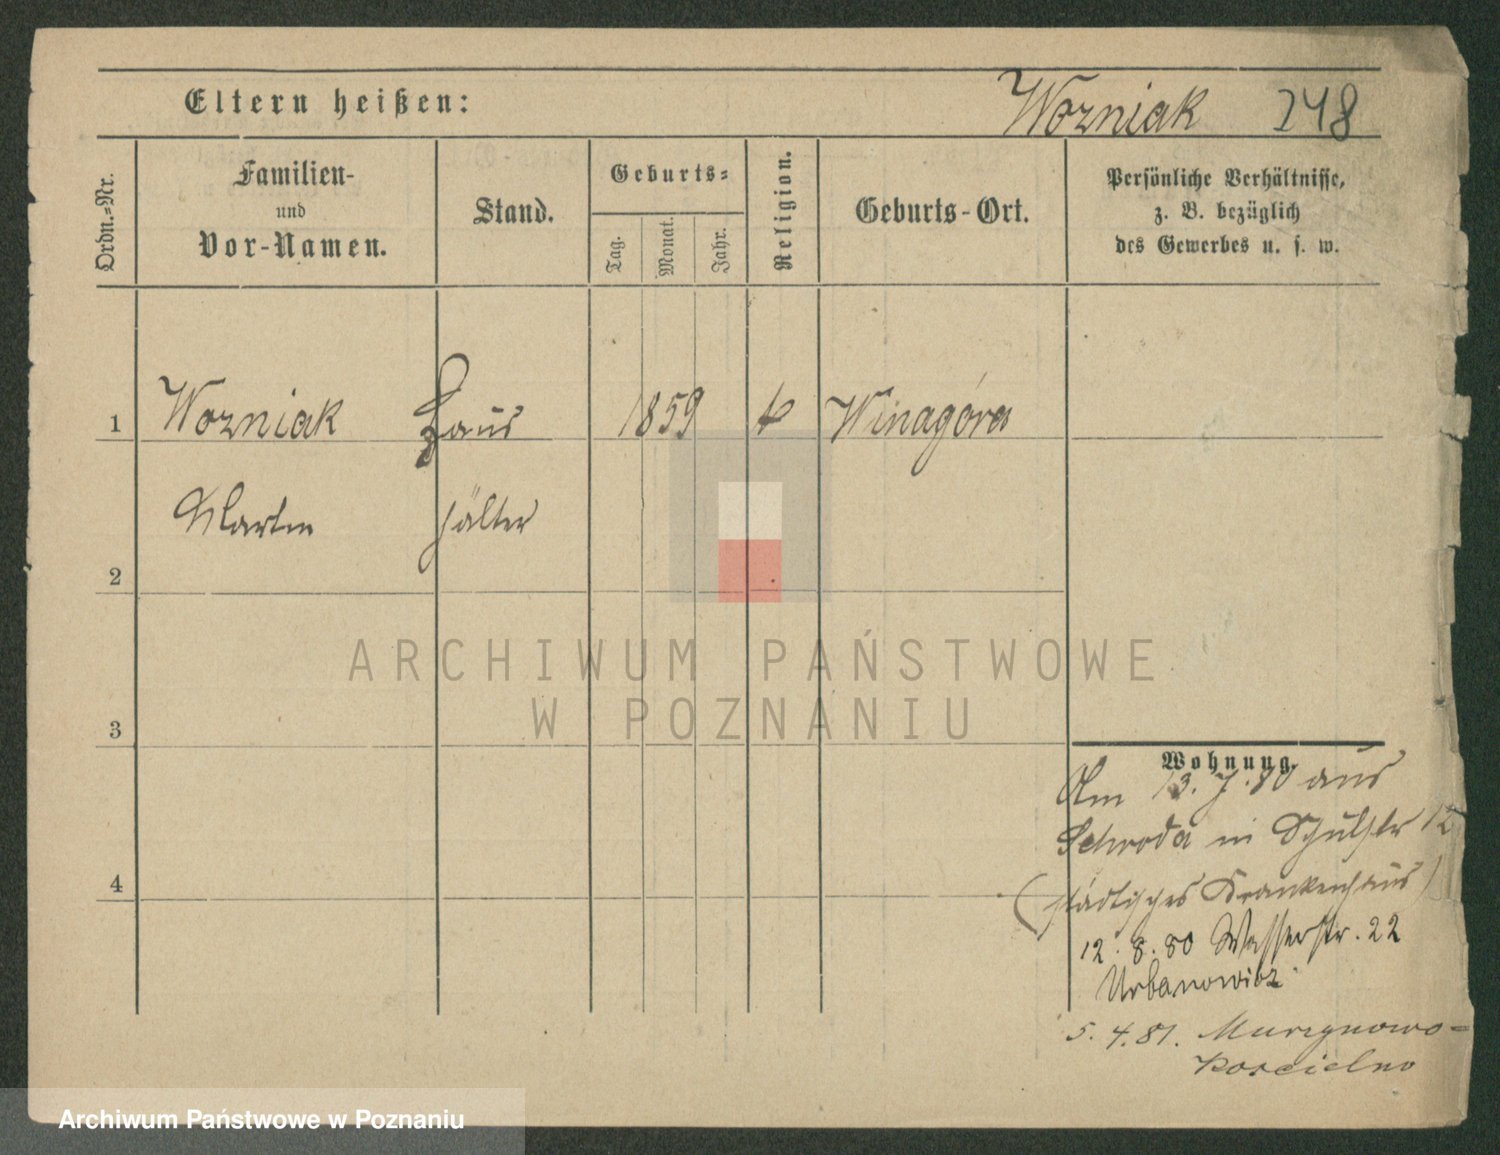 Eltern heißen: Wozniak 248
Ordn.=Nr.
Familien-
und
Vor-Namen.
Stand.
Geburts=
Tag.
Monat.
Jahr.
Religion.
Geburts-Ort.
Persönliche Verhältnisse,
z. B. bezüglich
des Gewerbes u. s. w.
1 Wozniak Haus 1859 k Winagóra
Martin hälter
2
ARCHIWUM PAŃSTWOWE
W POZNANIU
3
Wohnung.
Am 13.7.80 aus
Schroda in Schulstr 12
4
(städtisches Krankenhaus)
12.8.80 Wasserstr. 22
Urbanowicz
5.4.81. Murzynowo-
Koscielno
Archiwum Państwowe w Poznaniu